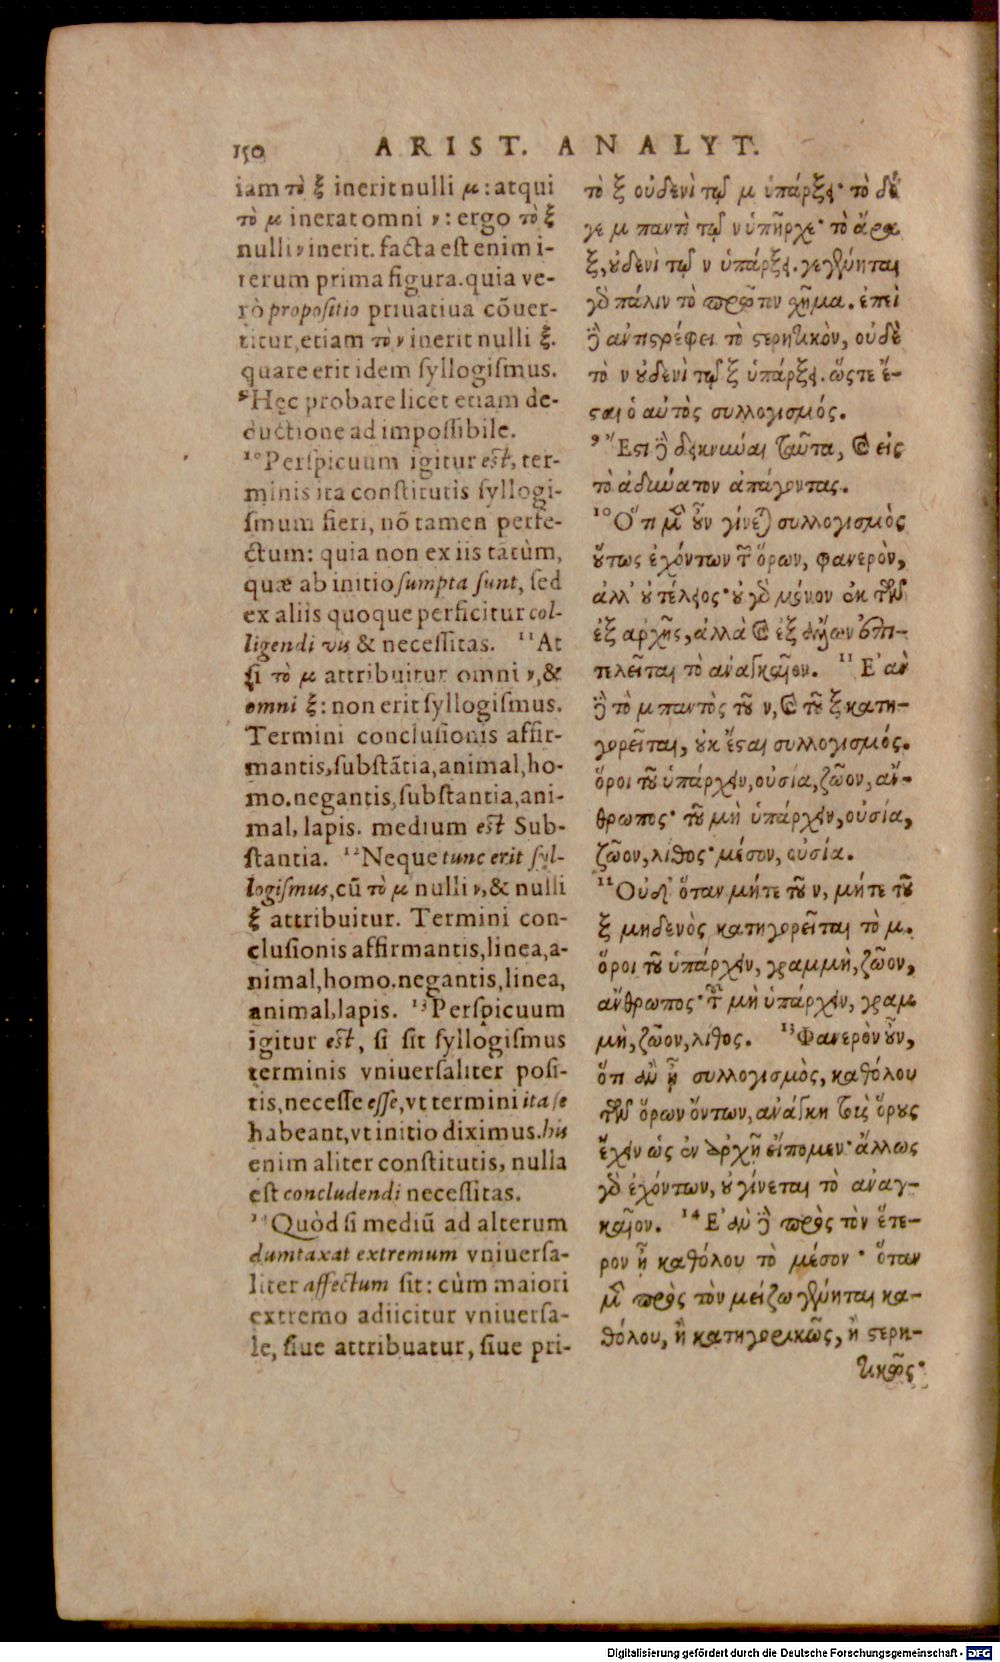 150 ARIST. ANALYT.
iam τὸ ξ inerit nulli μ: atqui
τὸ μ inerat omni ν: ergo τὸ ξ
nulli ν inerit. facta est enim i-
terum prima figura. quia ve-
rò propositio priuatiua cõuer-
titur, etiam τὸ ν inerit nulli ξ.
quare erit idem syllogismus.
⁹Hęc probare licet etiam de-
ductione ad impossibile.
¹⁰Perspicuum igitur est, ter-
minis ita constitutis syllogi-
smum fieri, nõ tamen perfe-
ctum: quia non ex iis tãtùm,
quæ ab initio sumpta sunt, sed
ex aliis quoque perficitur col-
ligendi vis & necessitas. ¹¹At
si τὸ μ attribuitur omni ν, &
omni ξ: non erit syllogismus.
Termini conclusionis affir-
mantis, substãtia, animal, ho-
mo. negantis, substantia, ani-
mal, lapis. medium est Sub-
stantia. ¹²Neque tunc erit syl-
logismus, cũ τὸ μ nulli ν, & nulli
ξ attribuitur. Termini con-
clusionis affirmantis, linea, a-
nimal, homo. negantis, linea,
animal, lapis. ¹³Perspicuum
igitur est, si sit syllogismus
terminis vniuersaliter posi-
tis, necesse esse, vt termini ita se
habeant, vt initio diximus. his
enim aliter constitutis, nulla
est concludendi necessitas.
¹⁴Quòd si mediũ ad alterum
dumtaxat extremum vniuersa-
liter affectum sit: cùm maiori
extremo adiicitur vniuersa-
le, siue attribuatur, siue pri-
τὸ ξ οὐδενὶ τῷ μ ὑπάρξει· τὸ δέ
γε μ παντὶ τῷ ν ὑπῆρχε· τὸ ἄρα
ξ, οὐδενὶ τῷ ν ὑπάρξει. γεγένηται
γὸ πάλιν τὸ πρῶτον σχῆμα. ἐπεὶ
δὲ ἀντιστρέφει τὸ στερητικὸν, οὐδὲ
τὸ ν οὐδενὶ τῷ ξ ὑπάρξει. ὥστε ἔ-
σται ὁ αὐτὸς συλλογισμός.
⁹Ἔστι δὲ δεικνύναι ταῦτα, καὶ εἰς
τὸ ἀδύνατον ἀπάγοντας.
¹⁰Ὅτι μὲν οὖν γίνεται συλλογισμὸς
οὕτως ἐχόντων τῶν ὅρων, φανερὸν,
ἀλλ' οὐ τέλειος· οὐ γὸ μόνον ἐκ τῶν
ἐξ ἀρχῆς, ἀλλὰ καὶ ἐξ ἄλλων ἐπι-
τελεῖται τὸ ἀναγκαῖον. ¹¹Ἐὰν
δὲ τὸ μ παντὸς τοῦ ν, καὶ τοῦ ξ κατη-
γορεῖται, οὐκ ἔσται συλλογισμός.
ὅροι τοῦ ὑπάρχειν, οὐσία, ζῶον, ἄν-
θρωπος· τοῦ μὴ ὑπάρχειν, οὐσία,
ζῶον, λίθος· μέσον, οὐσία.
¹²Οὐδ' ὅταν μήτε τοῦ ν, μήτε τοῦ
ξ μηδενὸς κατηγορεῖται τὸ μ.
ὅροι τοῦ ὑπάρχειν, γραμμὴ, ζῶον,
ἄνθρωπος· τοῦ μὴ ὑπάρχειν, γραμ
μὴ, ζῶον, λίθος. ¹³Φανερὸν οὖν,
ὅτι ἂν ᾖ συλλογισμὸς, καθόλου
τῶν ὅρων ὄντων, ἀνάγκη τοὺς ὅρους
ἔχειν ὡς ἐν ἀρχῇ εἴπομεν· ἄλλως
γὸ ἐχόντων, οὐ γίνεται τὸ ἀναγ-
καῖον. ¹⁴Ἐὰν δὲ πρὸς τὸν ἕτε-
ρον ᾖ καθόλου τὸ μέσον· ὅταν
μὲν πρὸς τὸν μείζω γένηται κα-
θόλου, ἢ κατηγορικῶς, ἢ στερη-
τικῶς·
Digitalisierung gefördert durch die Deutsche Forschungsgemeinschaft - DFG